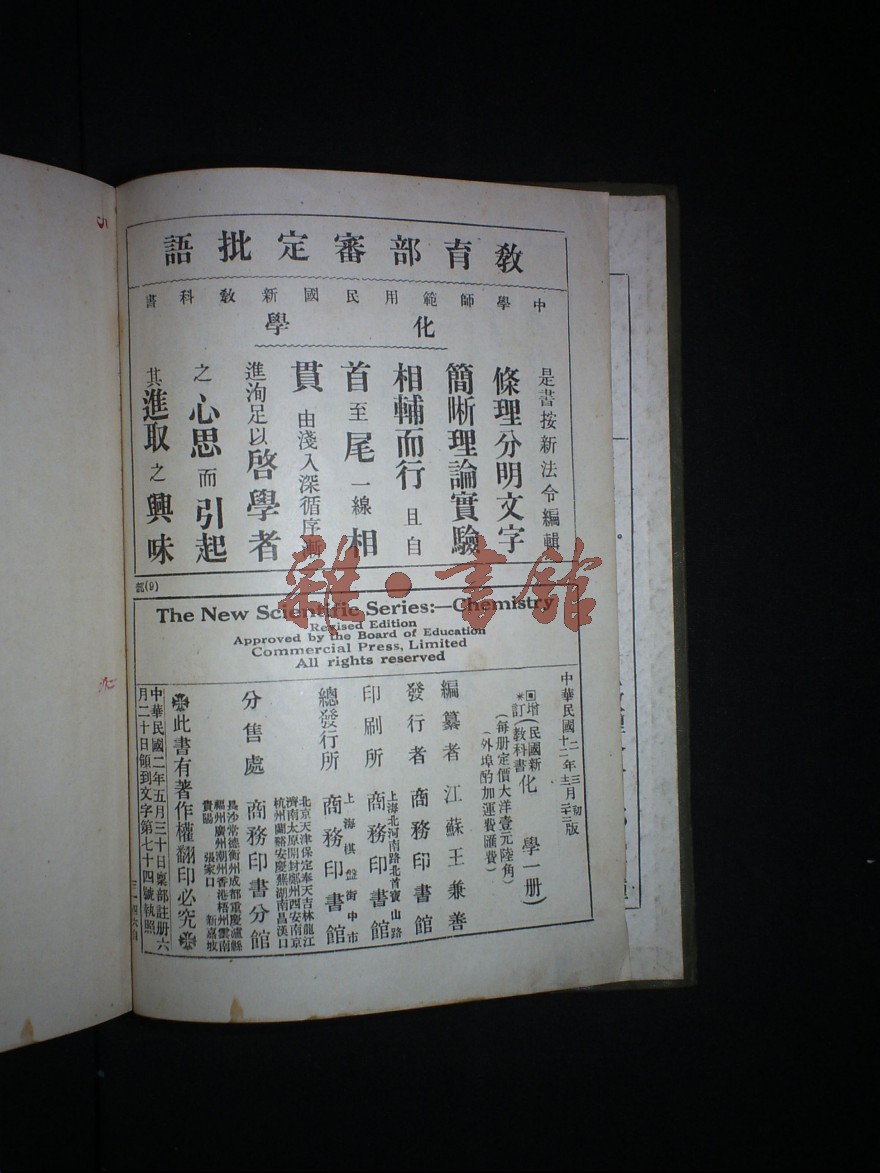 教育部審定批語
中學師範用民國新教科書
化學
是書按新法令編輯
條理分明文字
簡晰理論實驗
相輔而行且自
首至尾一線相
貫由淺入深循序漸
進洵足以啓學者
之心思而引起
其進取之興味
The New Scientific Series:—Chemistry
Revised Edition
Approved by the Board of Education
Commercial Press, Limited
All rights reserved
(增訂)(民國新教科書)化學一册
(每册定價大洋壹元陸角)
(外埠酌加運費匯費)
編纂者 江蘇王兼善
發行者 商務印書館
上海北河南路北首寶山路
印刷所 商務印書館
上海棋盤街中市
總發行所 商務印書館
北京天津保定奉天吉林龍江
濟南太原開封鄭州西安南京
杭州蘭谿安慶蕪湖南昌漢口
分售處 商務印書分館
長沙常德衡州成都重慶瀘縣
福州廣州潮州香港梧州雲南
貴陽 張家口 新嘉坡
※此書有著作權翻印必究※
中華民國二年五月三十日稟部註册六
月二十日領到文字第七十四號執照
雜·書館